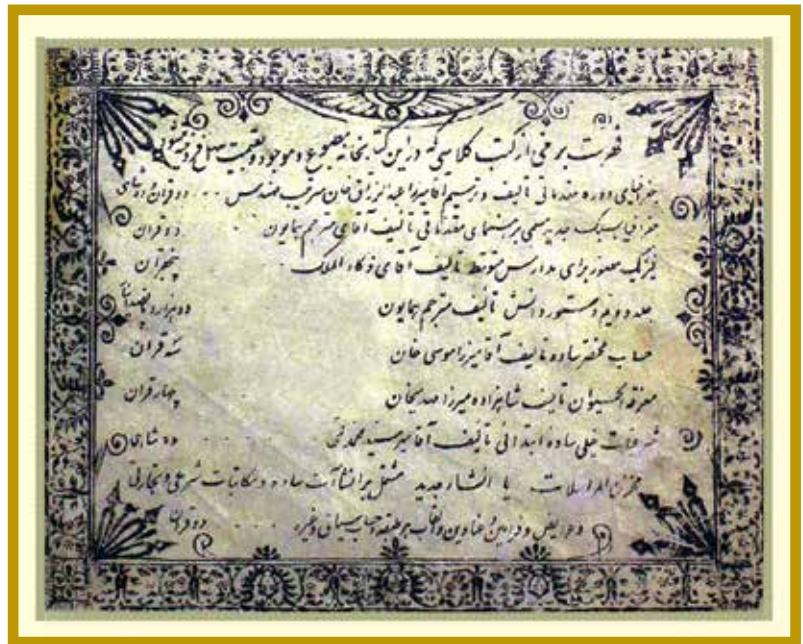 فهرست برخی از کتب کلاسی که در این کتابخانه مطبوع و موجود و بقیمت ذیل فروخته میشود
جغرافیای دوره مقدماتی تألیف و ترسیم آقا میرزا عبدالرزاق خان سرتیپ مهندس . . . دو قران و ده شاهی
جغرافیا بسبک جدید مسمی برهنمای مقدماتی تألیف آقای مترجم همایون . . . دو قران
فیزیک مصور برای مدارس متوسط تألیف آقای ذکاء الملک . پنجقران
جلد دویم دستور دانش تألیف مترجم همایون دو هزار و پانصد
حساب مختصر ساده تألیف آقا میرزا موسی خان سه قران
معرفة الحیوان تألیف شاهزاده میرزا خان چهار قران
شرعیات خیلی ساده ابتدائی تألیف آقا میر سید محمد تقی . . . ده شاهی
مخزن المراسلات یا انشاء جدید مشتمل بر انشاآت ساده و مکاتبات شرعی و تجارتی
و عرایض و فرامین و عناوین و القاب هر طبقه و حساب سیاقی و غیره . . . . دو قران